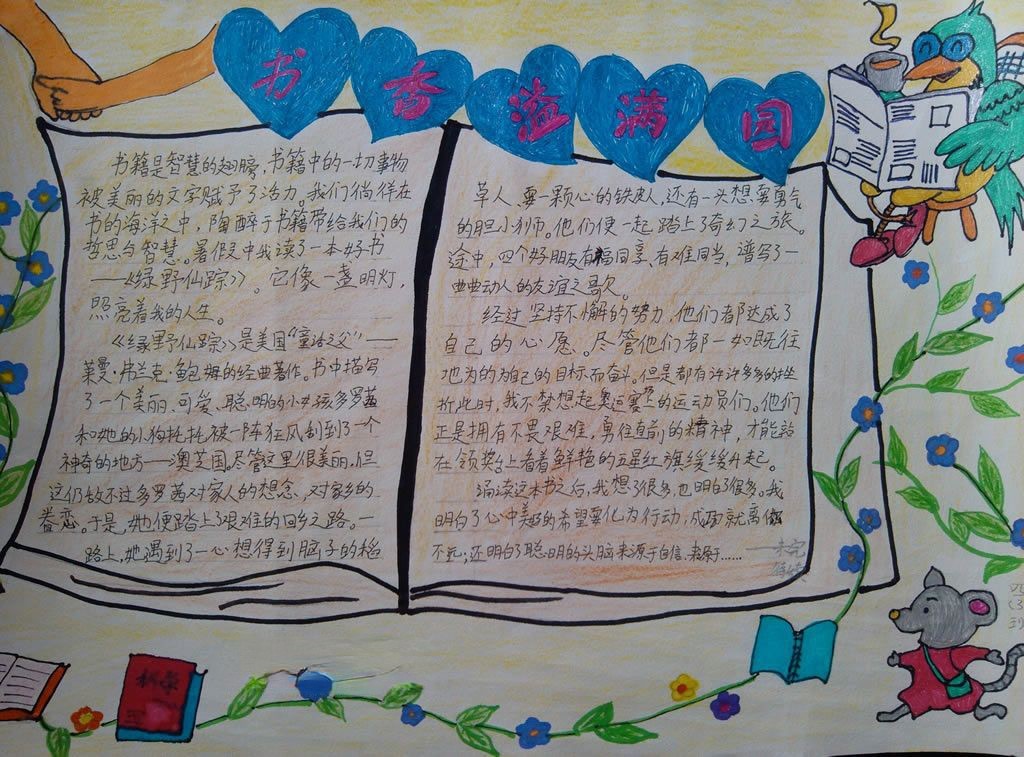 书香溢满园
书籍是智慧的翅膀,书籍中的一切事物
被美丽的文字赋予了活力。我们徜徉在
书的海洋之中,陶醉于书籍带给我们的
哲思与智慧。暑假中我读了一本好书
——《绿野仙踪》。它像一盏明灯,
照亮着我的人生。
《绿野仙踪》是美国“童话之父”——
莱曼·弗兰克·鲍姆的经典著作。书中描写
了一个美丽、可爱、聪明的小女孩多罗茜
和她的小狗托托被一阵狂风刮到了一个
神奇的地方——澳芝国,尽管这里很美丽,但
这仍敌不过多罗茜对家人的想念,对家乡的
眷恋。于是,她便踏上了艰难的回乡之路。一
路上,她遇到了一心想得到脑子的稻
草人、要一颗心的铁皮人,还有一头想要勇气
的胆小狮。他们便一起踏上了奇幻之旅。
途中,四个好朋友有福同享、有难同当,谱写了一
曲曲动人的友谊之歌。
经过坚持不懈的努力,他们者都达成了
自己的心愿。尽管他们都一如既往
地为的为自己的目标而奋斗。但是都有许许多多的挫
折此时,我不禁想起奥运赛上的运动员们。他们
正是拥有不畏艰难,勇往直前的精神,才能站
在领奖台上看着鲜艳的五星红旗缓缓升起。
诵读这本书之后,我想了很多,也明白了很多。我
明白了心中美好的希望要化为行动,成功就离你
不远;还明白了聪明的头脑来源于自信、来源于……
——未完
待续
科学